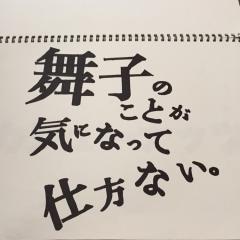 舞子の
ことが
気になって
仕方ない。